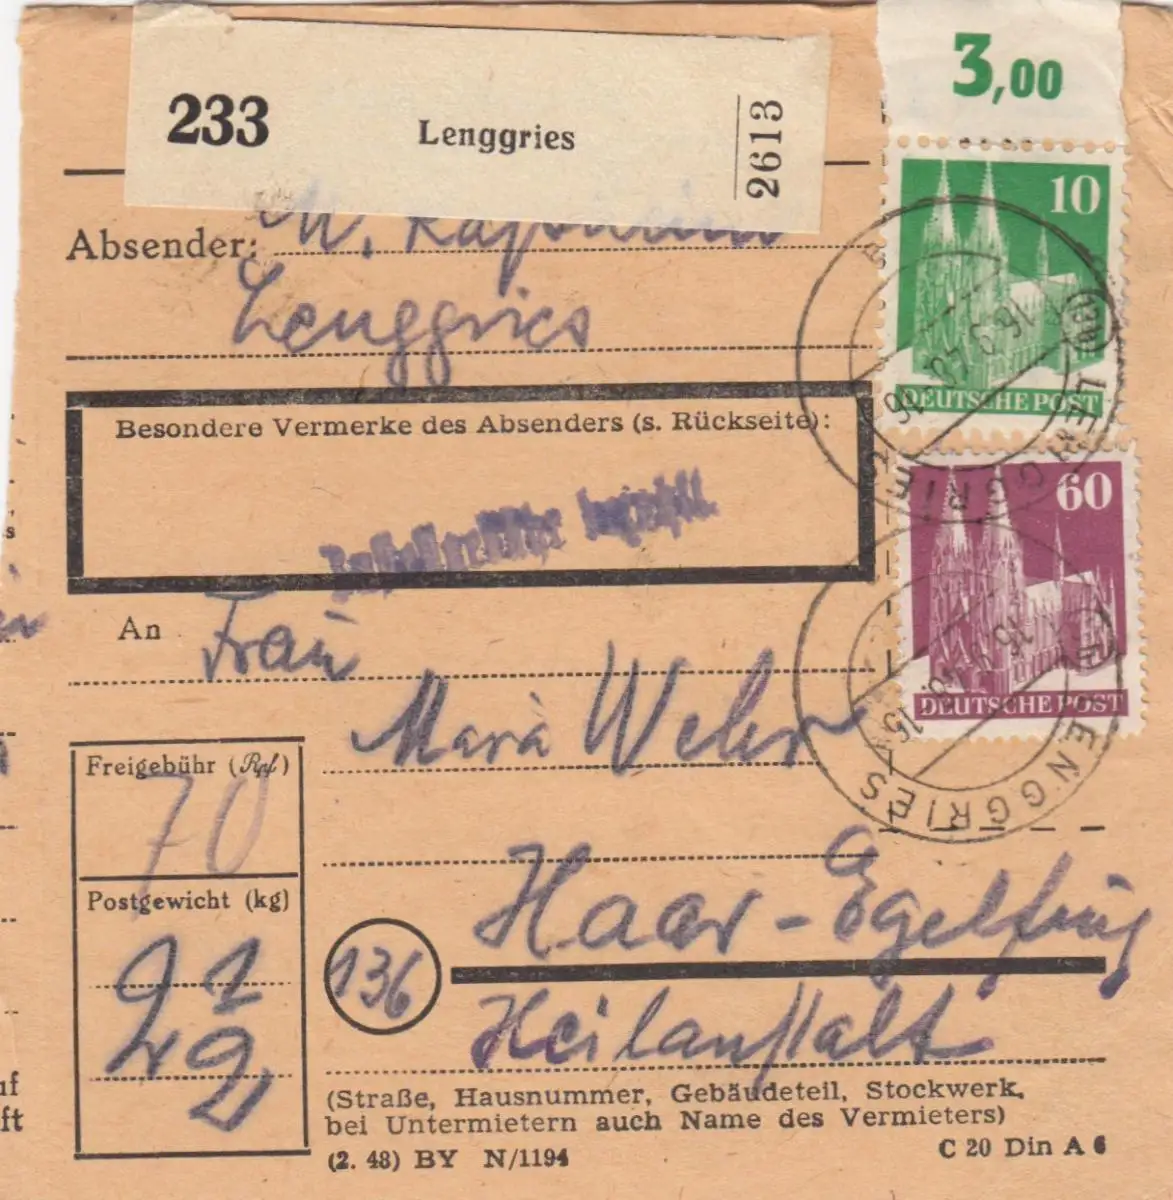 3,00
233 Lenggries 2613
10
DEUTSCHE POST
Absender: M.
Lenggries
Besondere Vermerke des Absenders (s. Rückseite):
bezahlt
60
DEUTSCHE POST
LENGGRIES
LENGGRIES
An Frau
Maria Weber
Freigebühr (Rpf)
70
Postgewicht (kg)
Haar-Egelfing
136
Heilanstalt
(Straße, Hausnummer, Gebäudeteil, Stockwerk,
bei Untermietern auch Name des Vermieters)
(2. 48) BY N/1194 C 20 Din A 6